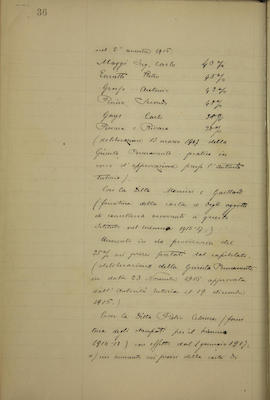 36
nel 2° semestre 1915.
Maggi Ing. Carlo 40%
Pietro 45%
Antonio 42%
40%
Gays Carlo 30%
e Rivara 30%
(deliberazione 13 marzo 1917 della
Giunta Permanente - pratica in
corso d'approvazione presso l'autorità
tutoria).
Con la Ditta e Gaillard
(fornitura della carta e degli oggetti
di cancelleria occorrenti a questo
nel 1916-17)
Aumento in via provvisoria del
25% sui prezzi portati dal capitolato.
(deliberazione della Giunta Permanente
in data 23 Novembre 1915 approvata
dall'Autorità tutoria il 19 dicembre
1915.)
Con la Ditta Pietro (forni-
tura degli stampati per il
1914-18) con effetto dal 1 gennaio 1917:
a) un aumento sui prezzi della carta di